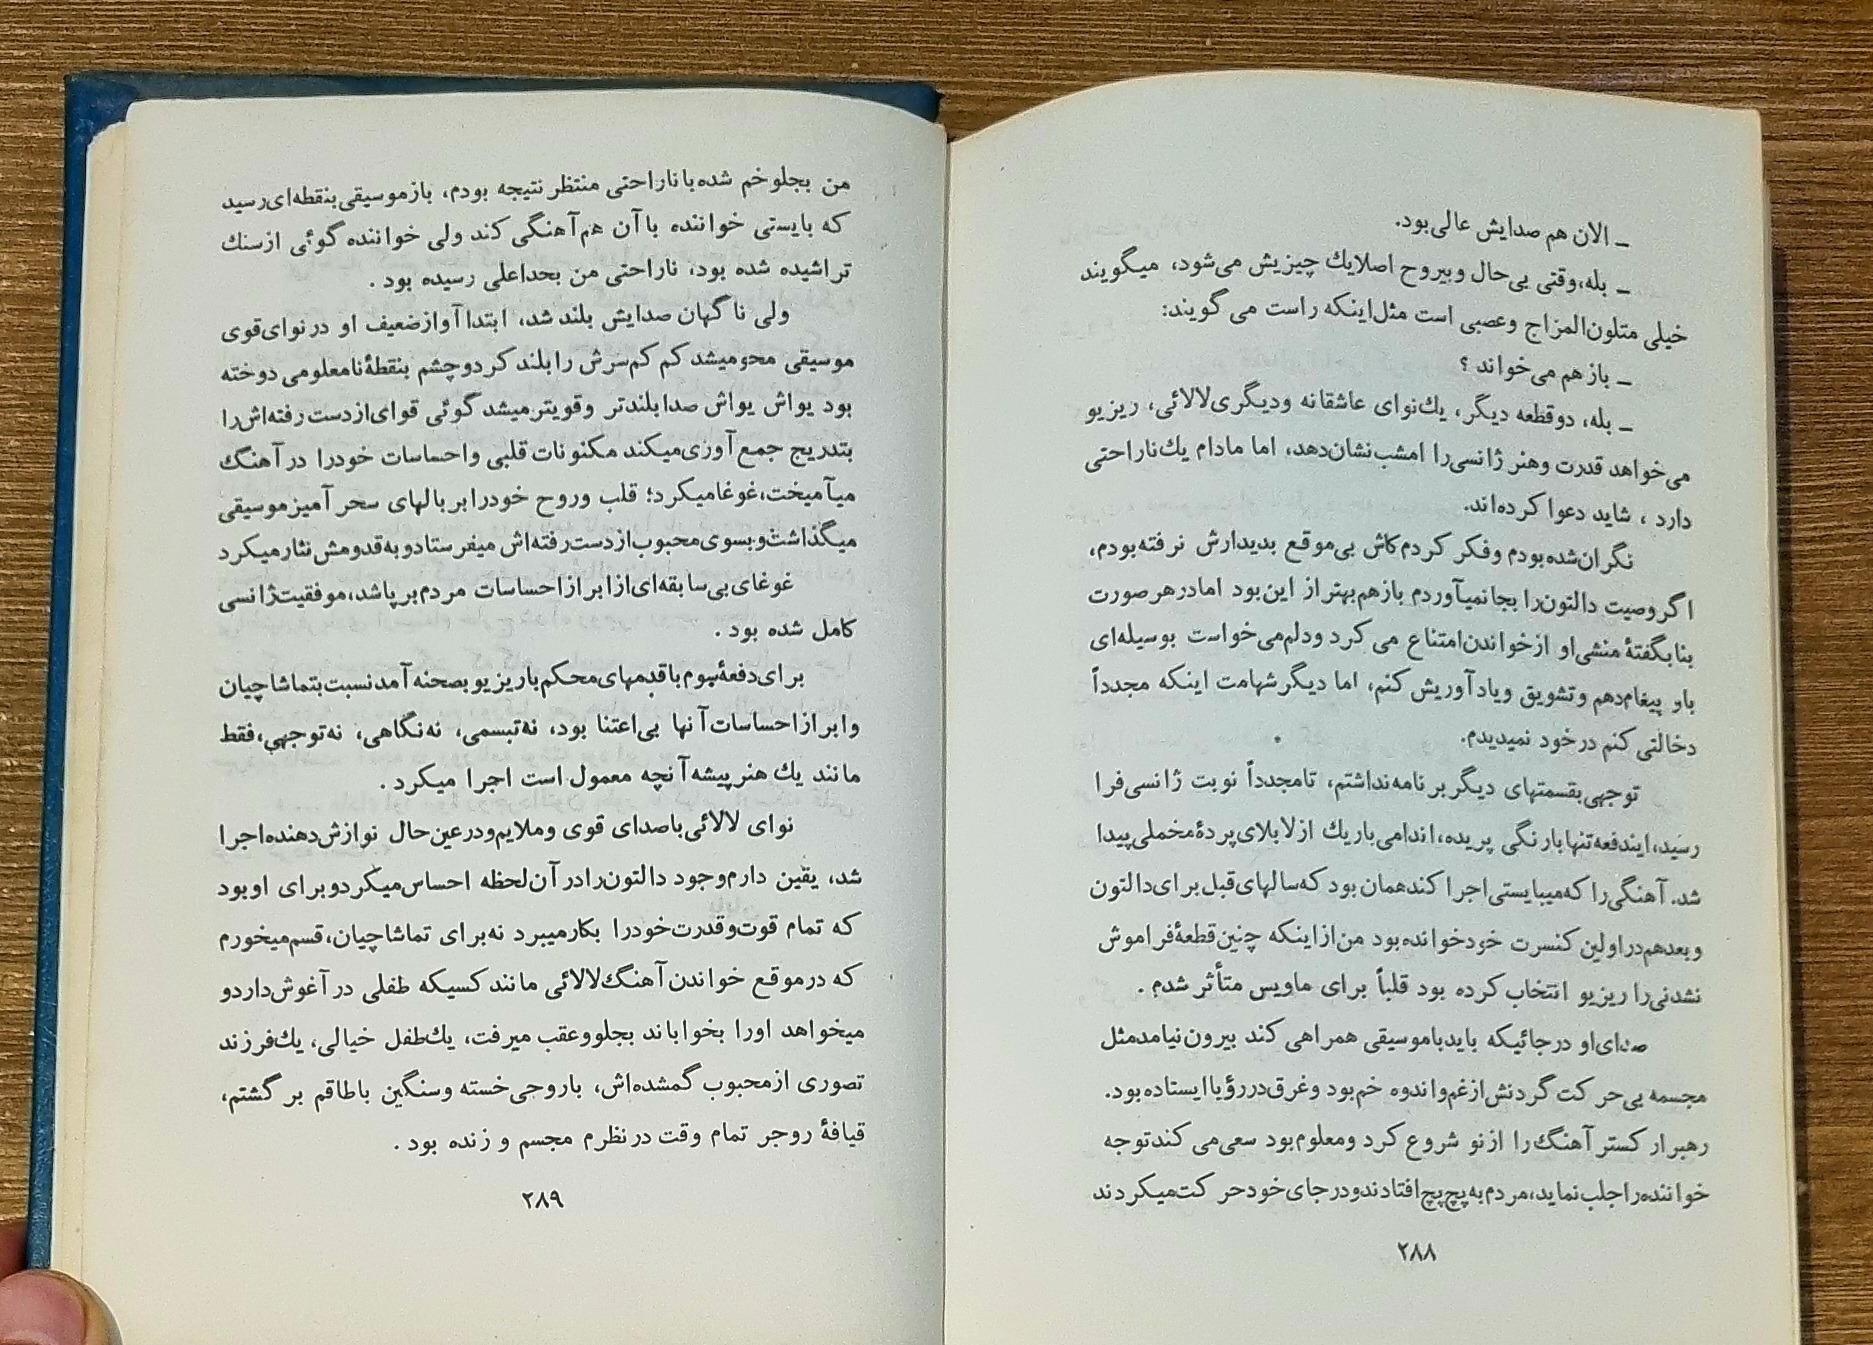 ـ الان هم صدایش عالی بود.
ـ بله، وقتی بی‌حال و بیروح اصلا یك چیزیش می‌شود، میگویند
خیلی متلون‌المزاج و عصبی است مثل اینکه راست می گویند:
ـ باز هم می‌خواند ؟
ـ بله، دو قطعه دیگر، یك نوای عاشقانه و دیگری لالائی، ریز یو
می‌خواهد قدرت و هنر ژانسی را امشب نشان دهد، اما مادام یك ناراحتی
دارد ، شاید دعوا کرده‌اند.
نگران شده بودم و فکر کردم کاش بی‌موقع بدیدارش نرفته بودم،
اگر وصیت دالتون را بجا نمیآوردم باز هم بهتر از این بود اما در هر صورت
بنا بگفتهٔ منشی او از خواندن امتناع می کرد و دلم می‌خواست بوسیله‌ای
باو پیغام دهم و تشویق و یاد آوریش کنم، اما دیگر شهامت اینکه مجدداً
دخالتی کنم در خود نمیدیدم.
توجهی بقسمتهای دیگر برنامه نداشتم، تا مجدداً نوبت ژانسی فرا
رسید، ایندفعه تنها با رنگی پریده، اندامی باریك از لابلای پردهٔ مخملی پیدا
شد. آهنگی را که میبایستی اجرا کند همان بود که سالهای قبل برای دالتون
و بعد هم در اولین کنسرت خود خوانده بود من از اینکه چنین قطعهٔ فراموش
نشدنی را ریز یو انتخاب کرده بود قلباً برای ماویس متأثر شدم .
صدای او در جائیکه باید با موسیقی همراهی کند بیرون نیامد مثل
مجسمه بی‌حرکت گردنش از غم و اندوه خم بود و غرق در رؤیا ایستاده بود.
رهبر ارکستر آهنگ را از نو شروع کرد و معلوم بود سعی می کند توجه
خواننده را جلب نماید، مردم به پچ پچ افتادند و در جای خود حرکت میکردند
۲۸۸
من بجلو خم شده با ناراحتی منتظر نتیجه بودم، باز موسیقی بنقطه‌ای رسید
که بایستی خواننده با آن هم‌آهنگی کند ولی خواننده گوئی از سنك
تراشیده شده بود، ناراحتی من بحد اعلی رسیده بود .
ولی ناگهان صدایش بلند شد، ابتدا آواز ضعیف او در نوای قوی
موسیقی محو میشد کم کم سرش را بلند کرد و چشم بنقطهٔ نامعلومی دوخته
بود یواش یواش صدا بلندتر و قویتر میشد گوئی قوای از دست رفته‌اش را
بتدریج جمع آوری میکند مکنونات قلبی و احساسات خود را در آهنگ
میآمیخت، غوغا میکرد؛ قلب و روح خود را بر بالهای سحر آمیز موسیقی
میگذاشت و بسوی محبوب از دست رفته‌اش میفرستاد و به قدومش نثار میکرد
غوغای بی‌سابقه‌ای از ابراز احساسات مردم بر پا شد، موفقیت ژانسی
کامل شده بود .
برای دفعهٔ سوم با قدمهای محکم با ریز یو بصحنه آمد نسبت بتماشاچیان
و ابراز احساسات آنها بی‌اعتنا بود، نه تبسمی، نه نگاهی، نه توجهی، فقط
مانند یك هنرپیشه آنچه معمول است اجرا میکرد .
نوای لالائی با صدای قوی و ملایم و در عین حال نوازش دهنده اجرا
شد، یقین دارم وجود دالتون را در آن لحظه احساس میکرد و برای او بود
که تمام قوت و قدرت خود را بکار میبرد نه برای تماشاچیان، قسم میخورم
که در موقع خواندن آهنگ لالائی مانند کسیکه طفلی در آغوش دارد و
میخواهد او را بخواباند بجلو و عقب میرفت، یك طفل خیالی، یك فرزند
تصوری از محبوب گمشده‌اش، با روحی خسته و سنگین باطاقم بر گشتم،
قیافهٔ روجر تمام وقت در نظرم مجسم و زنده بود .
۲۸۹